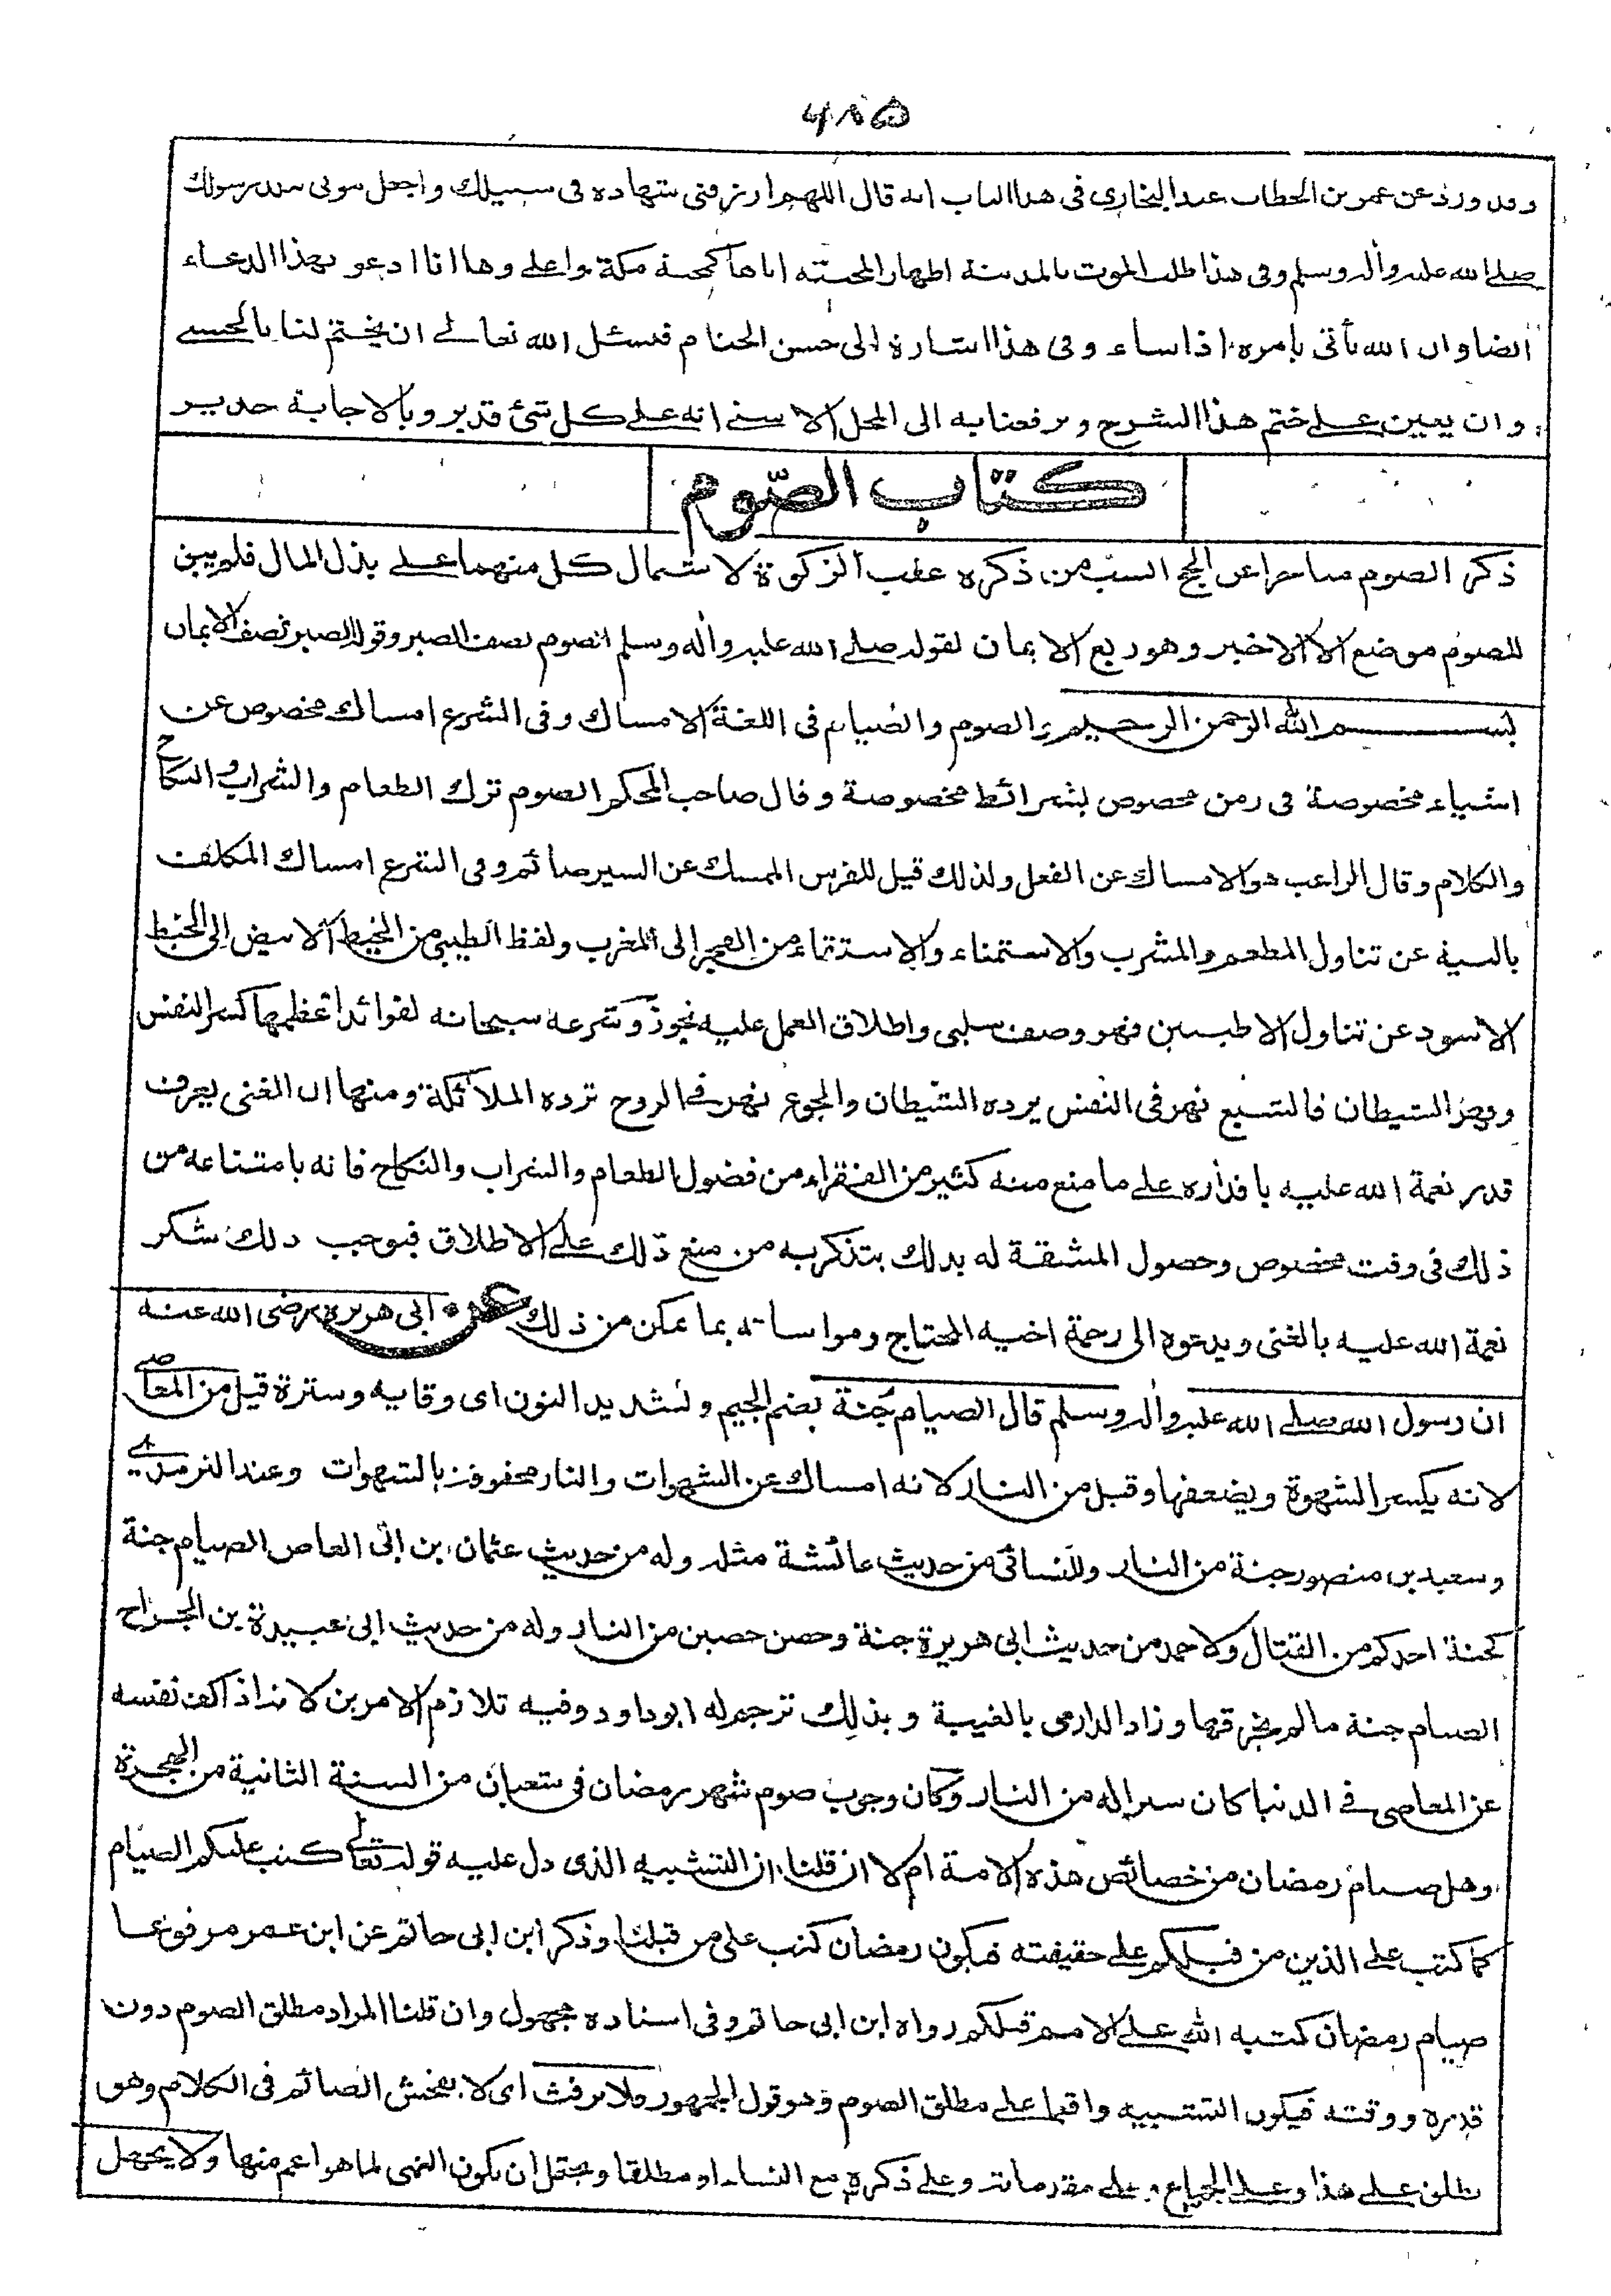 ٤٨٥
وقد ورد عن عمر بن الخطاب عند البخاري في هذا الباب انه قال اللهم ارزقني شهادة في سبيلك واجعل موتي ببلد رسولك
صلى الله عليه وآله وسلم وفي هذا طلب الموت بالمدينة اظهارا لمحبته اياها كمحبة مكة واعلى وها انا ادعو بهذا الدعاء
ايضا وان الله يأتي بأمره اذا شاء وفي هذا اشارة الى حسن الختام فنسئل الله تعالى ان يختم لنا بالحسنى
وان يعين على ختم هذا الشرح ويرفعنا به الى المحل الاسنى انه على كل شئ قدير وبالاجابة جدير
كتاب الصّوم
ذكر الصوم متاخرا عن الحج انسب من ذكره عقب الزكوة لاشتمال كل منهما على بذل المال فلم يبق
للصوم موضع الا الاخير وهو ربع الايمان لقوله صلى الله عليه وآله وسلم الصوم نصف الصبر وقوله الصبر نصف الايمان
بسم الله الرحمن الرحيم الصوم والصيام في اللغة الامساك وفي الشرع امساك مخصوص عن
اشياء مخصوصة في زمن مخصوص بشرائط مخصوصة وقال صاحب المحكم الصوم ترك الطعام والشراب والنكاح
والكلام وقال الراغب هو الامساك عن الفعل ولذلك قيل للفرس الممسك عن السير صائم وفي الشرع امساك المكلف
بالنية عن تناول المطعم والمشرب والاستمناء والاستقاء من الفجر الى المغرب ولفظ الطيبي من الخيط الابيض الى الخيط
الاسود عن تناول الاطيبين فهو وصف سلبي واطلاق العمل عليه تجوز وشرعه سبحانه لفوائد اعظمها كسر النفس
وقهر الشيطان فالشبع نهر في النفس يرده الشيطان والجوع نهر في الروح ترده الملائكة ومنها ان الغني يعرف
قدر نعمة الله عليه باقداره على ما منع منه كثير من الفقراء من فضول الطعام والشراب والنكاح فانه بامتناعه من
ذلك في وقت مخصوص وحصول المشقة له بذلك يتذكر به من منع ذلك على الاطلاق فيوجب ذلك شكر
نعمة الله عليه بالغنى ويدعوه الى رحمة اخيه المحتاج ومواساته بما يمكن من ذلك عن ابي هريرة رضى الله عنه
ان رسول الله صلى الله عليه وآله وسلم قال الصيام جُنة بضم الجيم وتشديد النون اى وقاية وسترة قيل من المعاصى
لانه يكسر الشهوة ويضعفها وقيل من النار لانه امساك عن الشهوات والنار محفوفة بالشهوات وعند الترمذي
وسعيد بن منصور جنة من النار وللنسائي من حديث عائشة مثله وله من حديث عثمان بن ابي العاص الصيام جنة
كجنة احدكم من القتال ولاحمد من حديث ابي هريرة جنة وحصن حصين من النار وله من حديث ابي عبيدة بن الجراح
الصيام جنة ما لم يخرقها وزاد الدارمي بالغيبة وبذلك ترجم له ابو داود وفيه تلازم الامرين لانه اذا كف نفسه
عن المعاصي في الدنيا كان سترا له من النار وكان وجوب صوم شهر رمضان في شعبان من السنة الثانية من الهجرة
وهل صيام رمضان من خصائص هذه الامة ام لا ان قلنا ان التشبيه الذى دل عليه قوله تعالى كتب عليكم الصيام
كما كتب على الذين من قبلكم على حقيقته فيكون رمضان كتب على من قبلنا وذكر ابن ابي حاتم عن ابن عمر مرفوعا
صيام رمضان كتبه الله على الامم قبلكم رواه ابن ابي حاتم وفي اسناده مجهول وان قلنا المراد مطلق الصوم دون
قدره ووقته فيكون التشبيه واقعا على مطلق الصوم وهو قول الجمهور فلا يرفث اى لا يفحش الصائم في الكلام وهو
يطلق على هذا وعلى الجماع وعلى مقدماته وعلى ذكره مع النساء او مطلقا ويحتمل ان يكون النهى لما هو اعم منها ولا يجهل